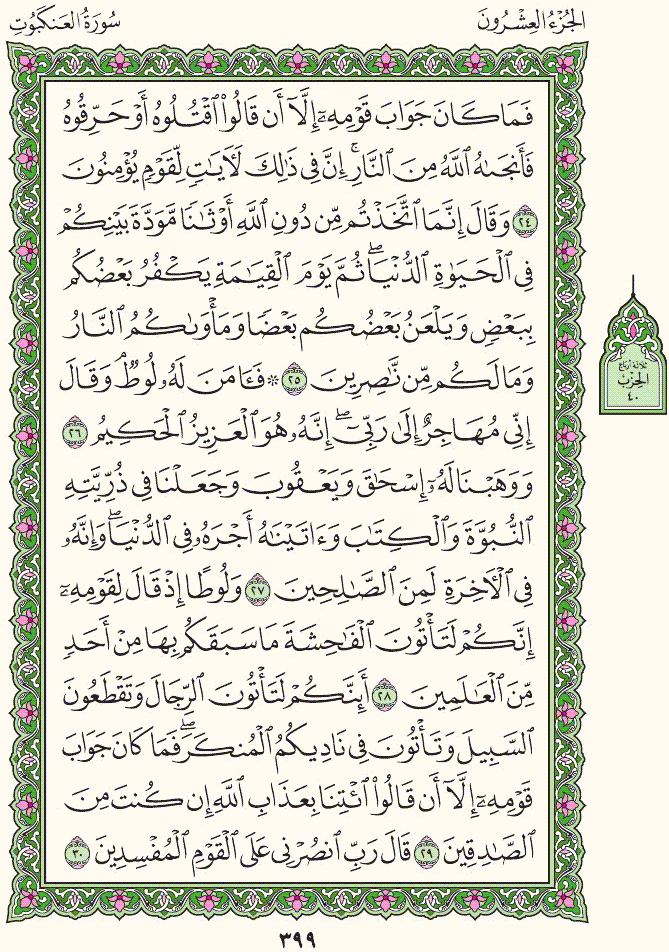 الجُزْءُ العِشْرُونَ
سُورَةُ العَنكَبُوتِ
فَمَا كَانَ جَوَابَ قَوْمِهِۦٓ إِلَّآ أَن قَالُوا۟ ٱقْتُلُوهُ أَوْ حَرِّقُوهُ
فَأَنجَىٰهُ ٱللَّهُ مِنَ ٱلنَّارِ ۚ إِنَّ فِى ذَٰلِكَ لَـَٔايَـٰتٍ لِّقَوْمٍ يُؤْمِنُونَ
٢٤ وَقَالَ إِنَّمَا ٱتَّخَذْتُم مِّن دُونِ ٱللَّهِ أَوْثَـٰنًا مَّوَدَّةَ بَيْنِكُمْ
فِى ٱلْحَيَوٰةِ ٱلدُّنْيَا ۖ ثُمَّ يَوْمَ ٱلْقِيَـٰمَةِ يَكْفُرُ بَعْضُكُم
بِبَعْضٍ وَيَلْعَنُ بَعْضُكُم بَعْضًا وَمَأْوَىٰكُمُ ٱلنَّارُ
وَمَا لَكُم مِّن نَّـٰصِرِينَ ٢٥ ۞ فَـَٔامَنَ لَهُۥ لُوطٌ ۘ وَقَالَ
إِنِّى مُهَاجِرٌ إِلَىٰ رَبِّىٓ ۖ إِنَّهُۥ هُوَ ٱلْعَزِيزُ ٱلْحَكِيمُ ٢٦
وَوَهَبْنَا لَهُۥٓ إِسْحَـٰقَ وَيَعْقُوبَ وَجَعَلْنَا فِى ذُرِّيَّتِهِ
ٱلنُّبُوَّةَ وَٱلْكِتَـٰبَ وَءَاتَيْنَـٰهُ أَجْرَهُۥ فِى ٱلدُّنْيَا ۖ وَإِنَّهُۥ
فِى ٱلْـَٔاخِرَةِ لَمِنَ ٱلصَّـٰلِحِينَ ٢٧ وَلُوطًا إِذْ قَالَ لِقَوْمِهِۦٓ
إِنَّكُمْ لَتَأْتُونَ ٱلْفَـٰحِشَةَ مَا سَبَقَكُم بِهَا مِنْ أَحَدٍ
مِّنَ ٱلْعَـٰلَمِينَ ٢٨ أَئِنَّكُمْ لَتَأْتُونَ ٱلرِّجَالَ وَتَقْطَعُونَ
ٱلسَّبِيلَ وَتَأْتُونَ فِى نَادِيكُمُ ٱلْمُنكَرَ ۖ فَمَا كَانَ جَوَابَ
قَوْمِهِۦٓ إِلَّآ أَن قَالُوا۟ ٱئْتِنَا بِعَذَابِ ٱللَّهِ إِن كُنتَ مِنَ
ٱلصَّـٰدِقِينَ ٢٩ قَالَ رَبِّ ٱنصُرْنِى عَلَى ٱلْقَوْمِ ٱلْمُفْسِدِينَ ٣٠
ثلاثة أرباع
الحزب
٤٠
٣٩٩